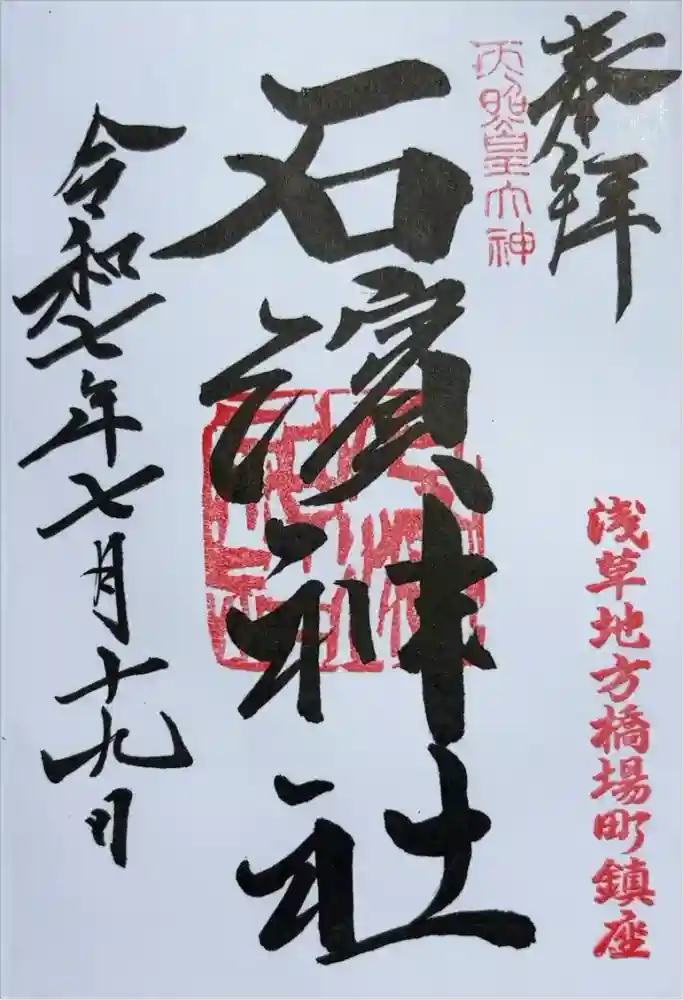 奉拝
天照皇大神
浅草地方橋場町鎮座
石濱神社
令和七年七月十九日